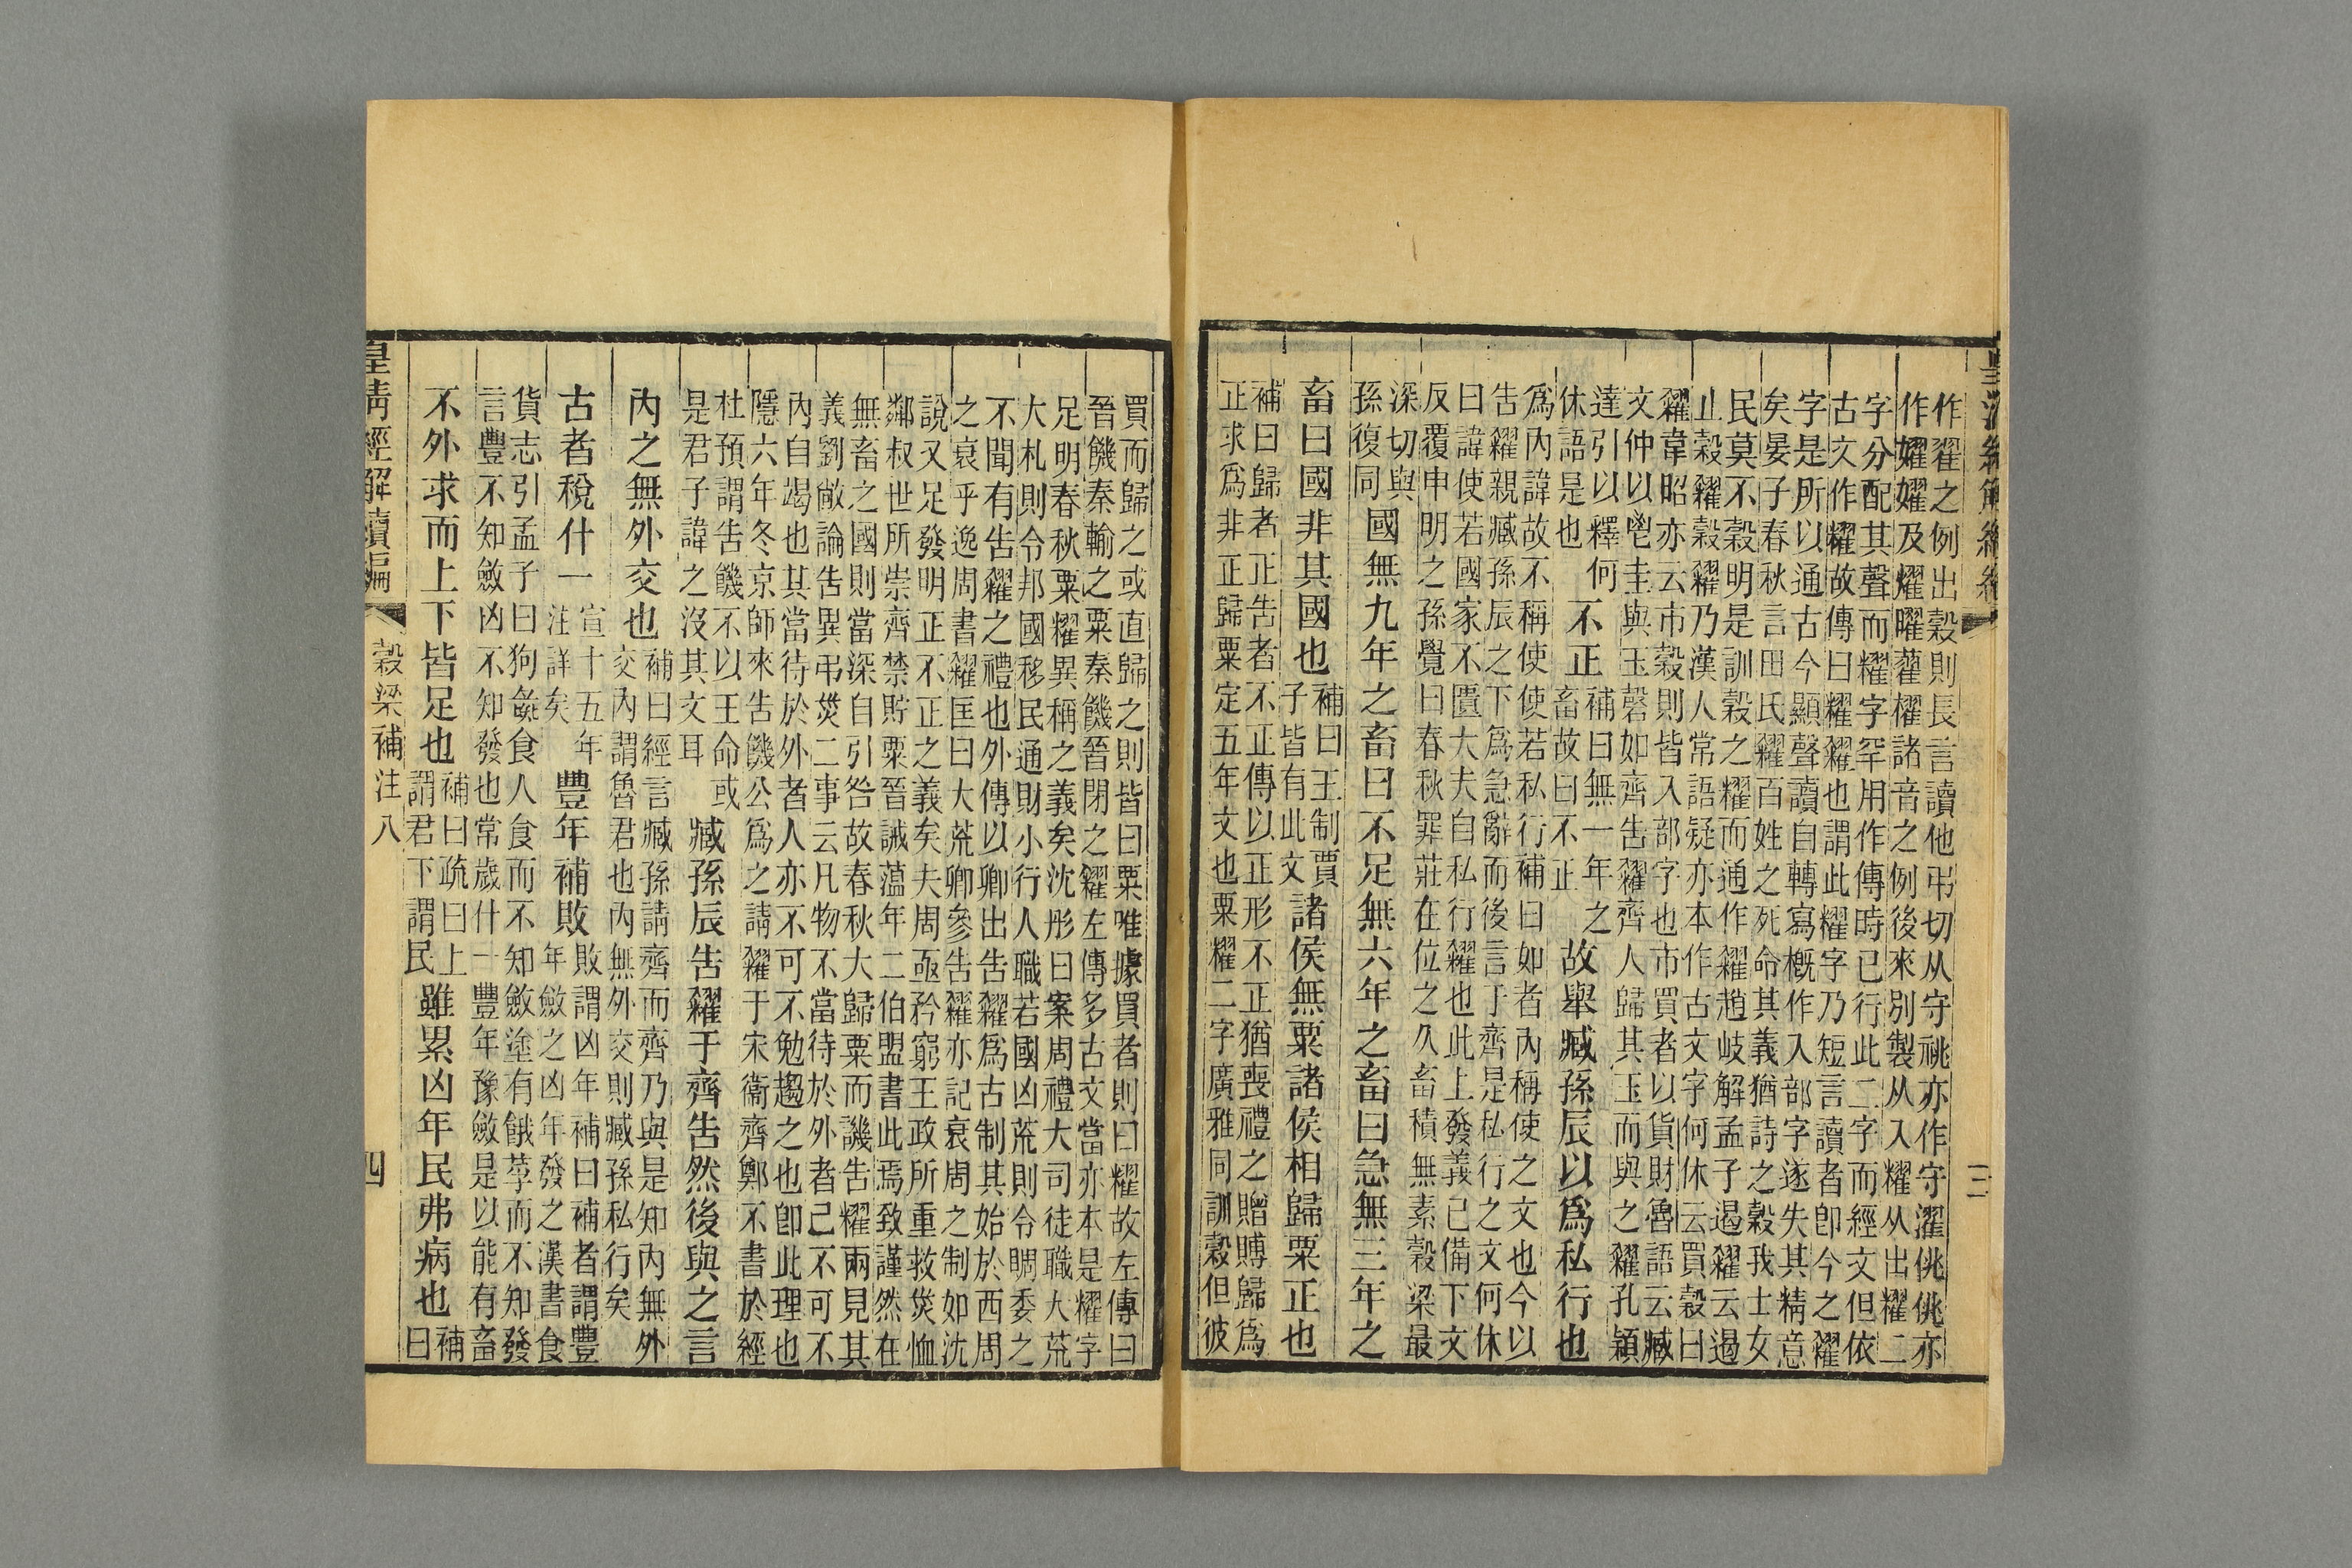 作糴之例出穀則長言讀他弔切从守祧亦作守濯佻佻亦
作嬥嬥及燿曜藋櫂諸音之例後來別製从入糴从出糶二
字分配其聲而糶字罕用作傳時已行此二字而經文但依
古文作糶故傳曰糶糴也謂此糶字乃短言讀者卽今之糴
字是所以通古今顯聲讀自轉寫槪作入部字遂失其精意
矣晏子春秋言田氏糴百姓之死命其義猶詩之穀我士女
民莫不穀明是訓穀之糶而通作糴趙岐解孟子遏糴云遏
止穀糴穀糴乃漢人常語疑亦本作古文字何休云買穀曰
糴韋昭亦云市穀則皆入部字也市買者以貨財魯語云臧
文仲以鬯圭與玉磬如齊告糴齊人歸其玉而與之糴孔穎
達引以釋何
休語是也
不正
補曰無一年之
畜故曰不正
故舉臧孫辰以爲私行也
爲內諱故不稱使使若私行補曰如者內稱使之文也今以
告糴親臧孫辰之下爲急辭而後言于齊是私行之文何休
曰諱使若國家不匱大夫自私行糴也此上發義已備下文
反覆申明之孫覺曰春秋罪莊在位之久畜積無素穀梁最
深切與
孫復同
國無九年之畜曰不足無六年之畜曰急無三年之
畜曰國非其國也
補曰王制賈
子皆有此文
諸侯無粟諸侯相歸粟正也
補曰歸者正告者不正傳以正形不正猶喪禮之贈賻歸爲
正求爲非正歸粟定五年文也粟糶二字廣雅同訓穀但彼
三
買而歸之或直歸之則皆曰粟唯據買者則曰糶故左傳曰
晉饑秦輸之粟秦饑晉閉之糴左傳多古文當亦本是糶字
足明春秋粟糶異稱之義矣沈彤曰案周禮大司徒職大荒
大札則令邦國移民通財小行人職若國凶荒則令賙委之
不聞有告糴之禮也外傳以卿出告糴爲古制其始於西周
之衰乎逸周書糴匡曰大荒卿參告糴亦記衰周之制如沈
說又足發明正不正之義矣夫周亟矜窮王政所重救災恤
鄰叔世所崇齊禁貯粟晉誡薀年二伯盟書此焉致謹然在
無畜之國則當深自引咎故春秋大歸粟而譏告糶兩見其
義劉敞論告異弔災二事云凡物不當待於外者己不可不
內自竭也其當待於外者人亦不可不勉趨之也卽此理也
隱六年冬京師來告饑公爲之請糴于宋衞齊鄭不書於經
杜預謂告饑不以王命或
是君子諱之沒其文耳
臧孫辰告糴于齊告然後與之言
內之無外交也
補曰經言臧孫請齊而齊乃與是知內無外
交內謂魯君也內無外交則臧孫私行矣
古者稅什一
宣十五年
注詳矣
豐年補敗
敗謂凶年補曰補者謂豐
年斂之凶年發之漢書食
貨志引孟子曰狗彘食人食而不知斂塗有餓莩而不知發
言豐不知斂凶不知發也常歲什一豐年豫斂是以能有畜
不外求而上下皆足也
補曰疏曰上
謂君下謂民
雖累凶年民弗病也
補
曰
皇清經解續編
穀梁補注八
四